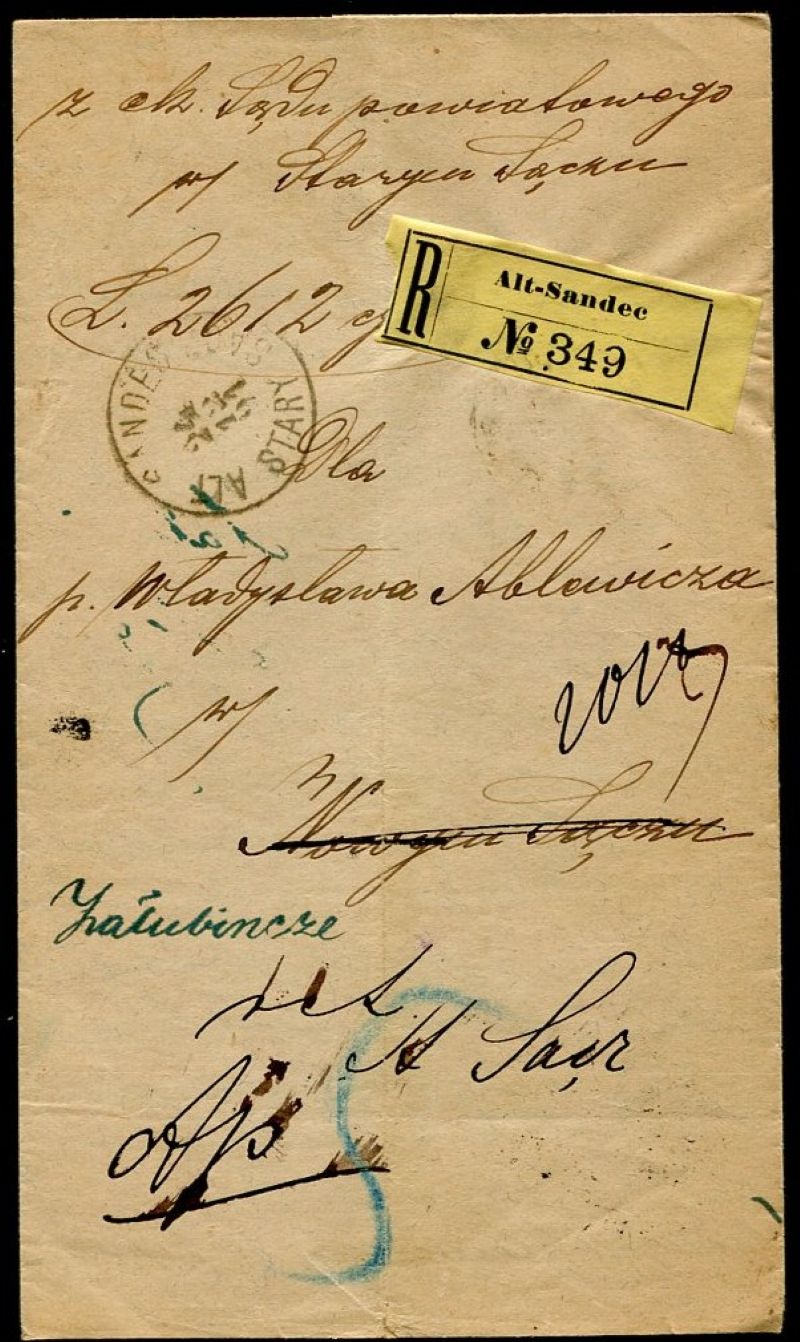 z ck. Sądu powiatowego
w Starym Sączu
L. 2612
R
Alt-Sandec
№ 349
SANDEC ALT STARY
Dla
p. Władysława Ablewicza
w
Nowym Sączu
Załubincze
ret
St Sącz